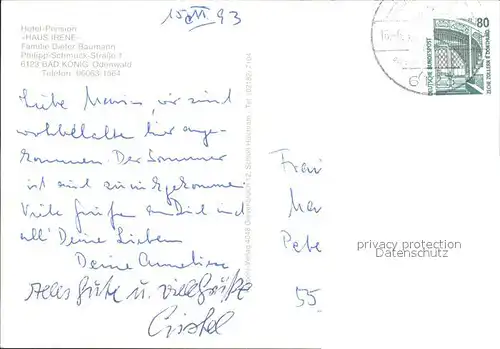 15. III. 93
Hotel-Pension
»HAUS IRENE«
Familie Dieter Baumann
Philipp-Schmuck-Straße 1
6123 BAD KÖNIG Odenwald
Telefon: 06063-1564
Liebe Maria, wir sind
wohlbehalten hier ange-
kommen. Der Sommer
ist auch zurückgekommen
Viele Grüße an Dich und
all' Deine Lieben
Deine Anneliese
Alles Gute u. viele Grüße
Cristel
80
DEUTSCHE BUNDESPOST
ZECHE ZOLLERN II DORTMUND
Frau
Mar
Pete
55
privacy protection
Datenschutz